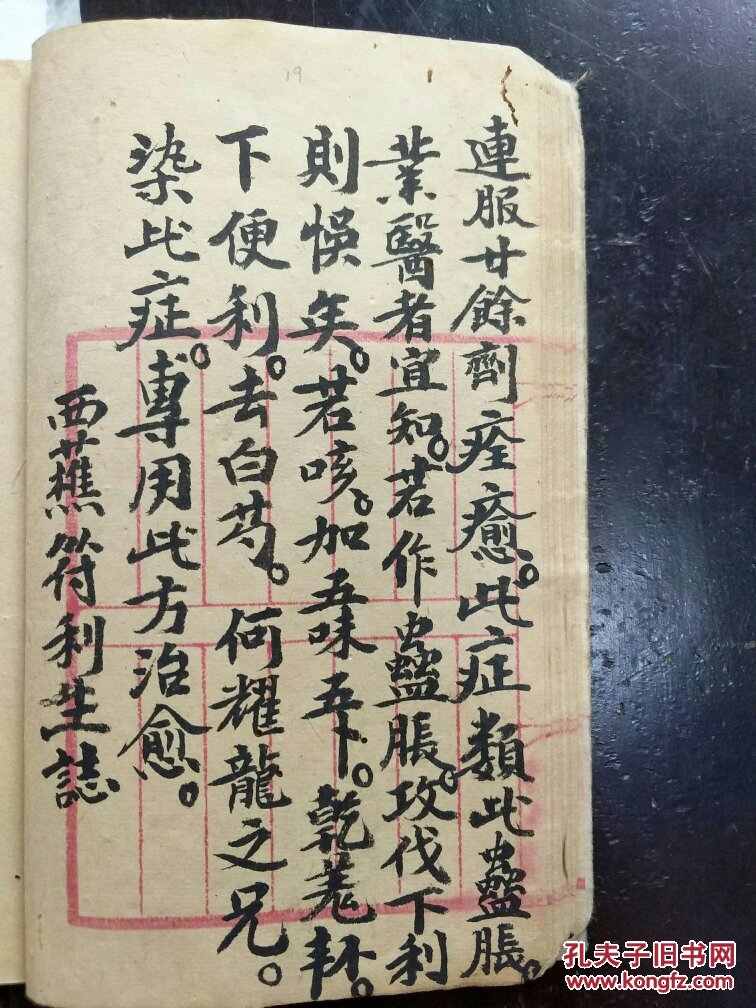 19
連服廿餘劑痊癒。此症類此蠱脹。
業醫者宜知。若作蠱脹。攻伐下利
則悞矣。若咳。加五味五卜。乾羌
下便利。去白芍。何耀龍之兄。
染此症。專用此方治愈。
西樵符利生誌
孔夫子旧书网
www.kongfz.com